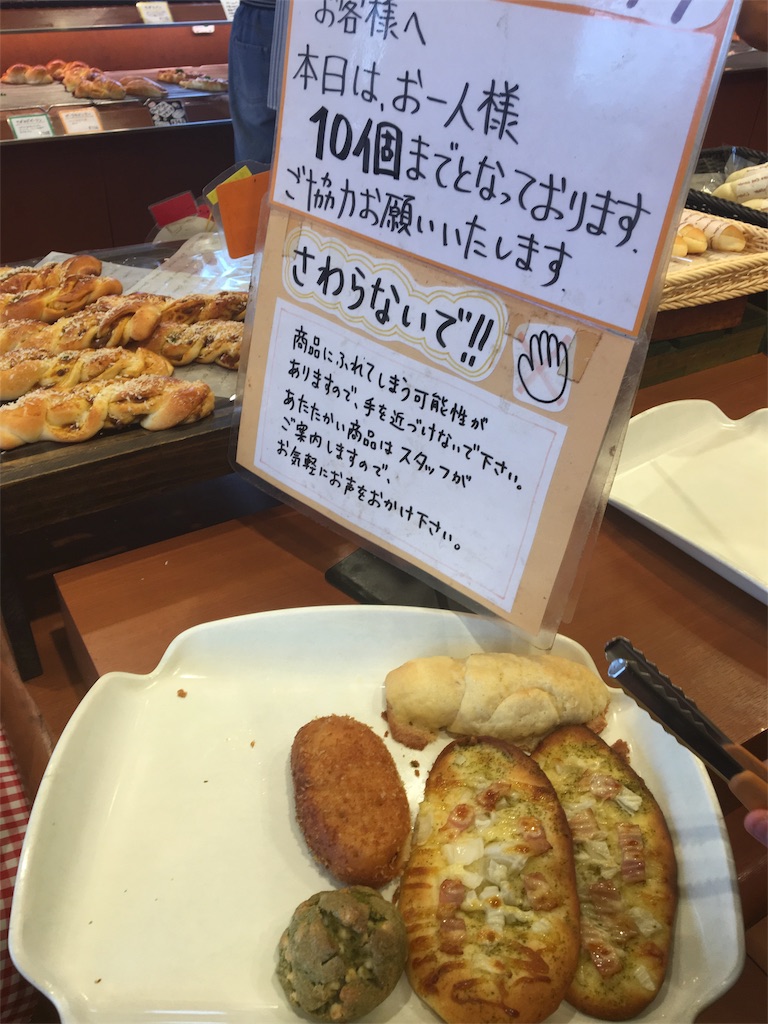 お客様へ
本日は、お一人様
10個までとなっております.
ご協力お願いいたします.
さわらないで!!
商品にふれてしまう可能性が
ありますので、手を近づけないで下さい。
あたたかい商品は スタッフが
ご案内しますので、
お気軽にお声をおかけ下さい。